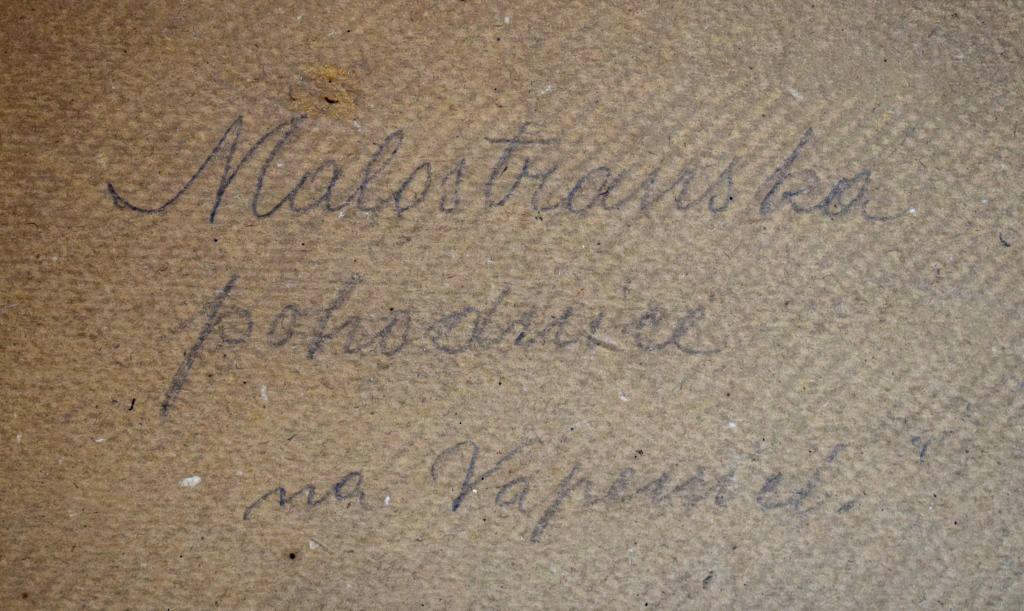 Malostranska
pohodnice
na Vapenici."